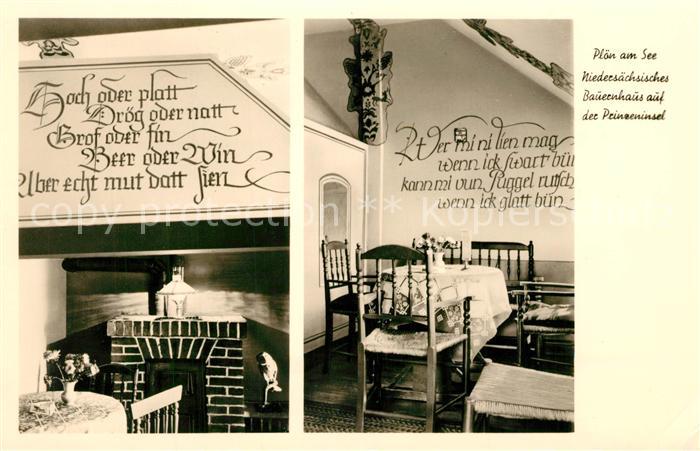 Hoch oder platt
Drög oder natt
Grof oder fin
Beer oder Win
Aber echt mut datt sien
Wer mi ni lien mag
wenn ick swart bün
kann mi vun Puggel rutsch
wenn ick glatt bün
Plön am See
Niedersächsisches
Bauernhaus auf
der Prinzeninsel
copy protection ** copy protection